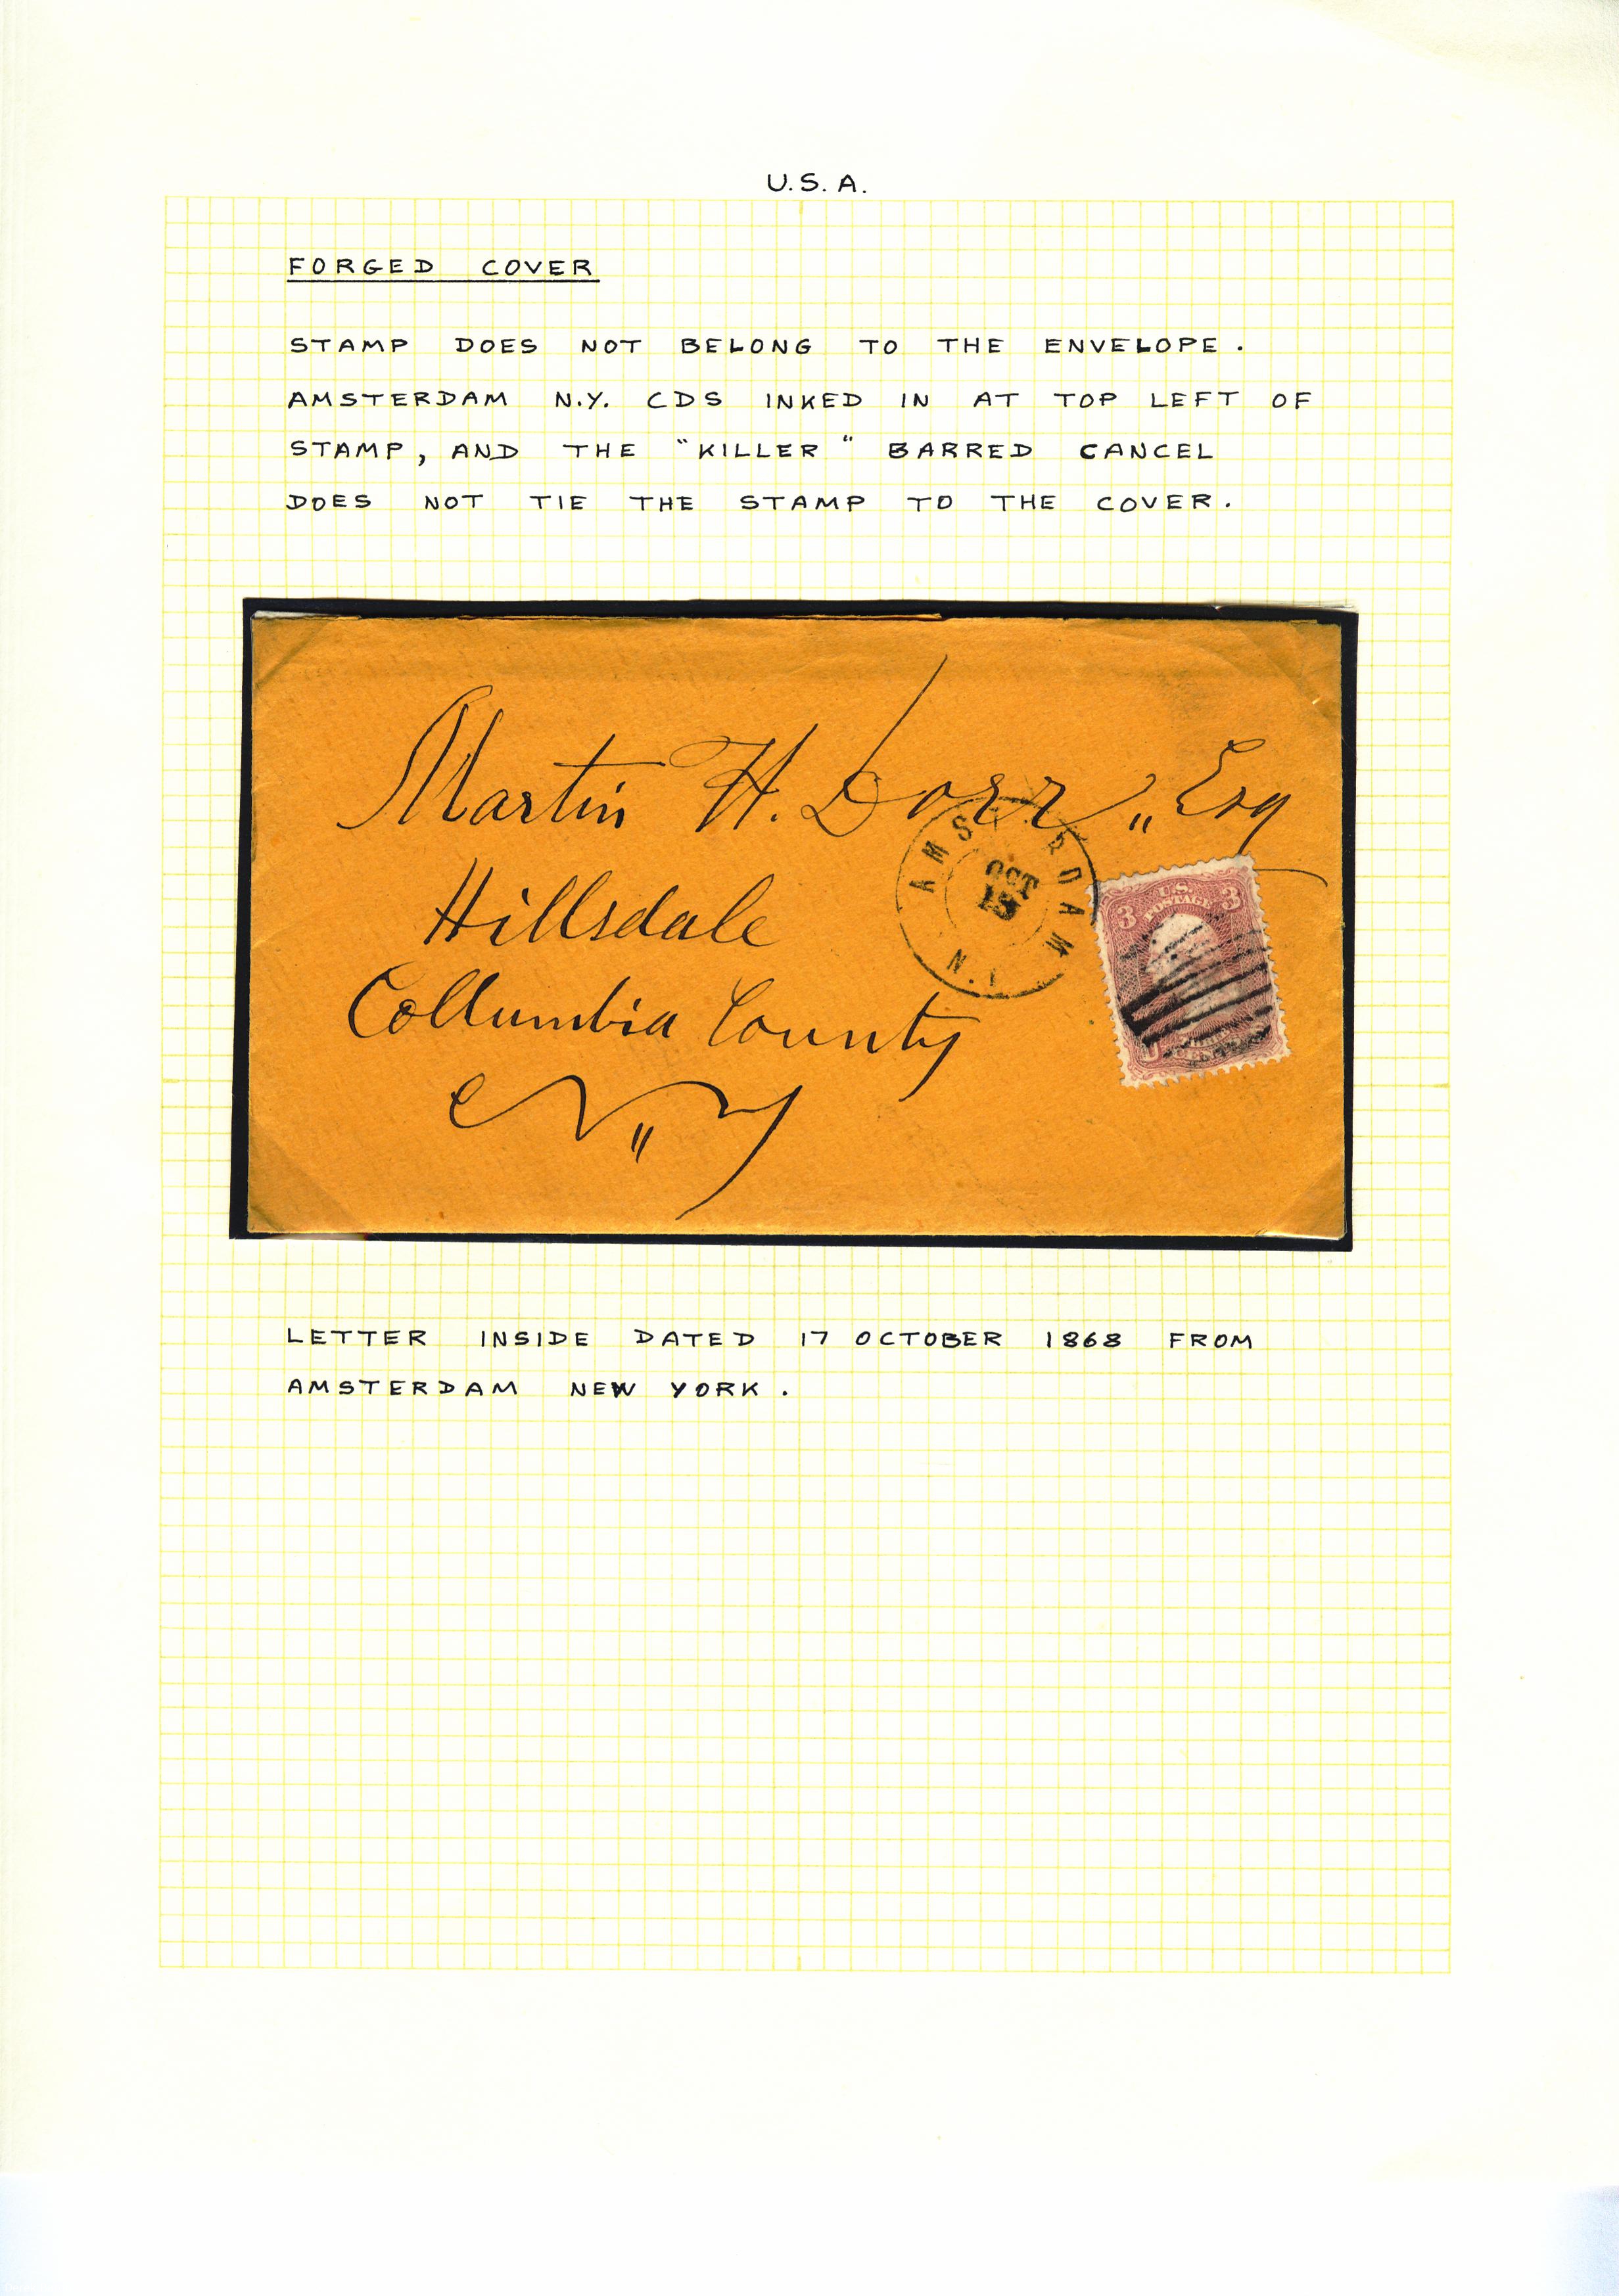 U.S.A.
FORGED COVER
STAMP DOES NOT BELONG TO THE ENVELOPE.
AMSTERDAM N.Y. CDS INKED IN AT TOP LEFT OF
STAMP, AND THE "KILLER" BARRED CANCEL
DOES NOT TIE THE STAMP TO THE COVER.
Martin H. Dorr,, Esq
Hillsdale
Collumbia County
N,,Y
AMST RDAM
OCT
N.Y
3 U.S. 3
POSTAGE
LETTER INSIDE DATED 17 OCTOBER 1868 FROM
AMSTERDAM NEW YORK.